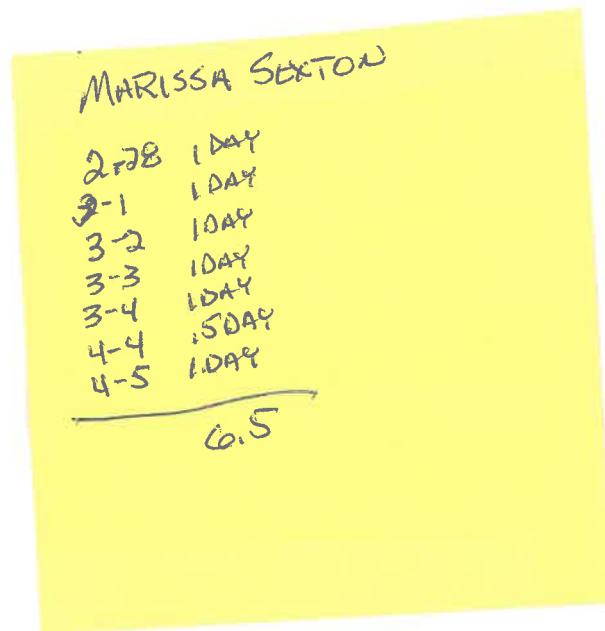 MARISSA SEXTON
2-28 1 DAY
3-1 1 DAY
3-2 1 DAY
3-3 1 DAY
3-4 1 DAY
4-4 .5 DAY
4-5 1 DAY
6.5